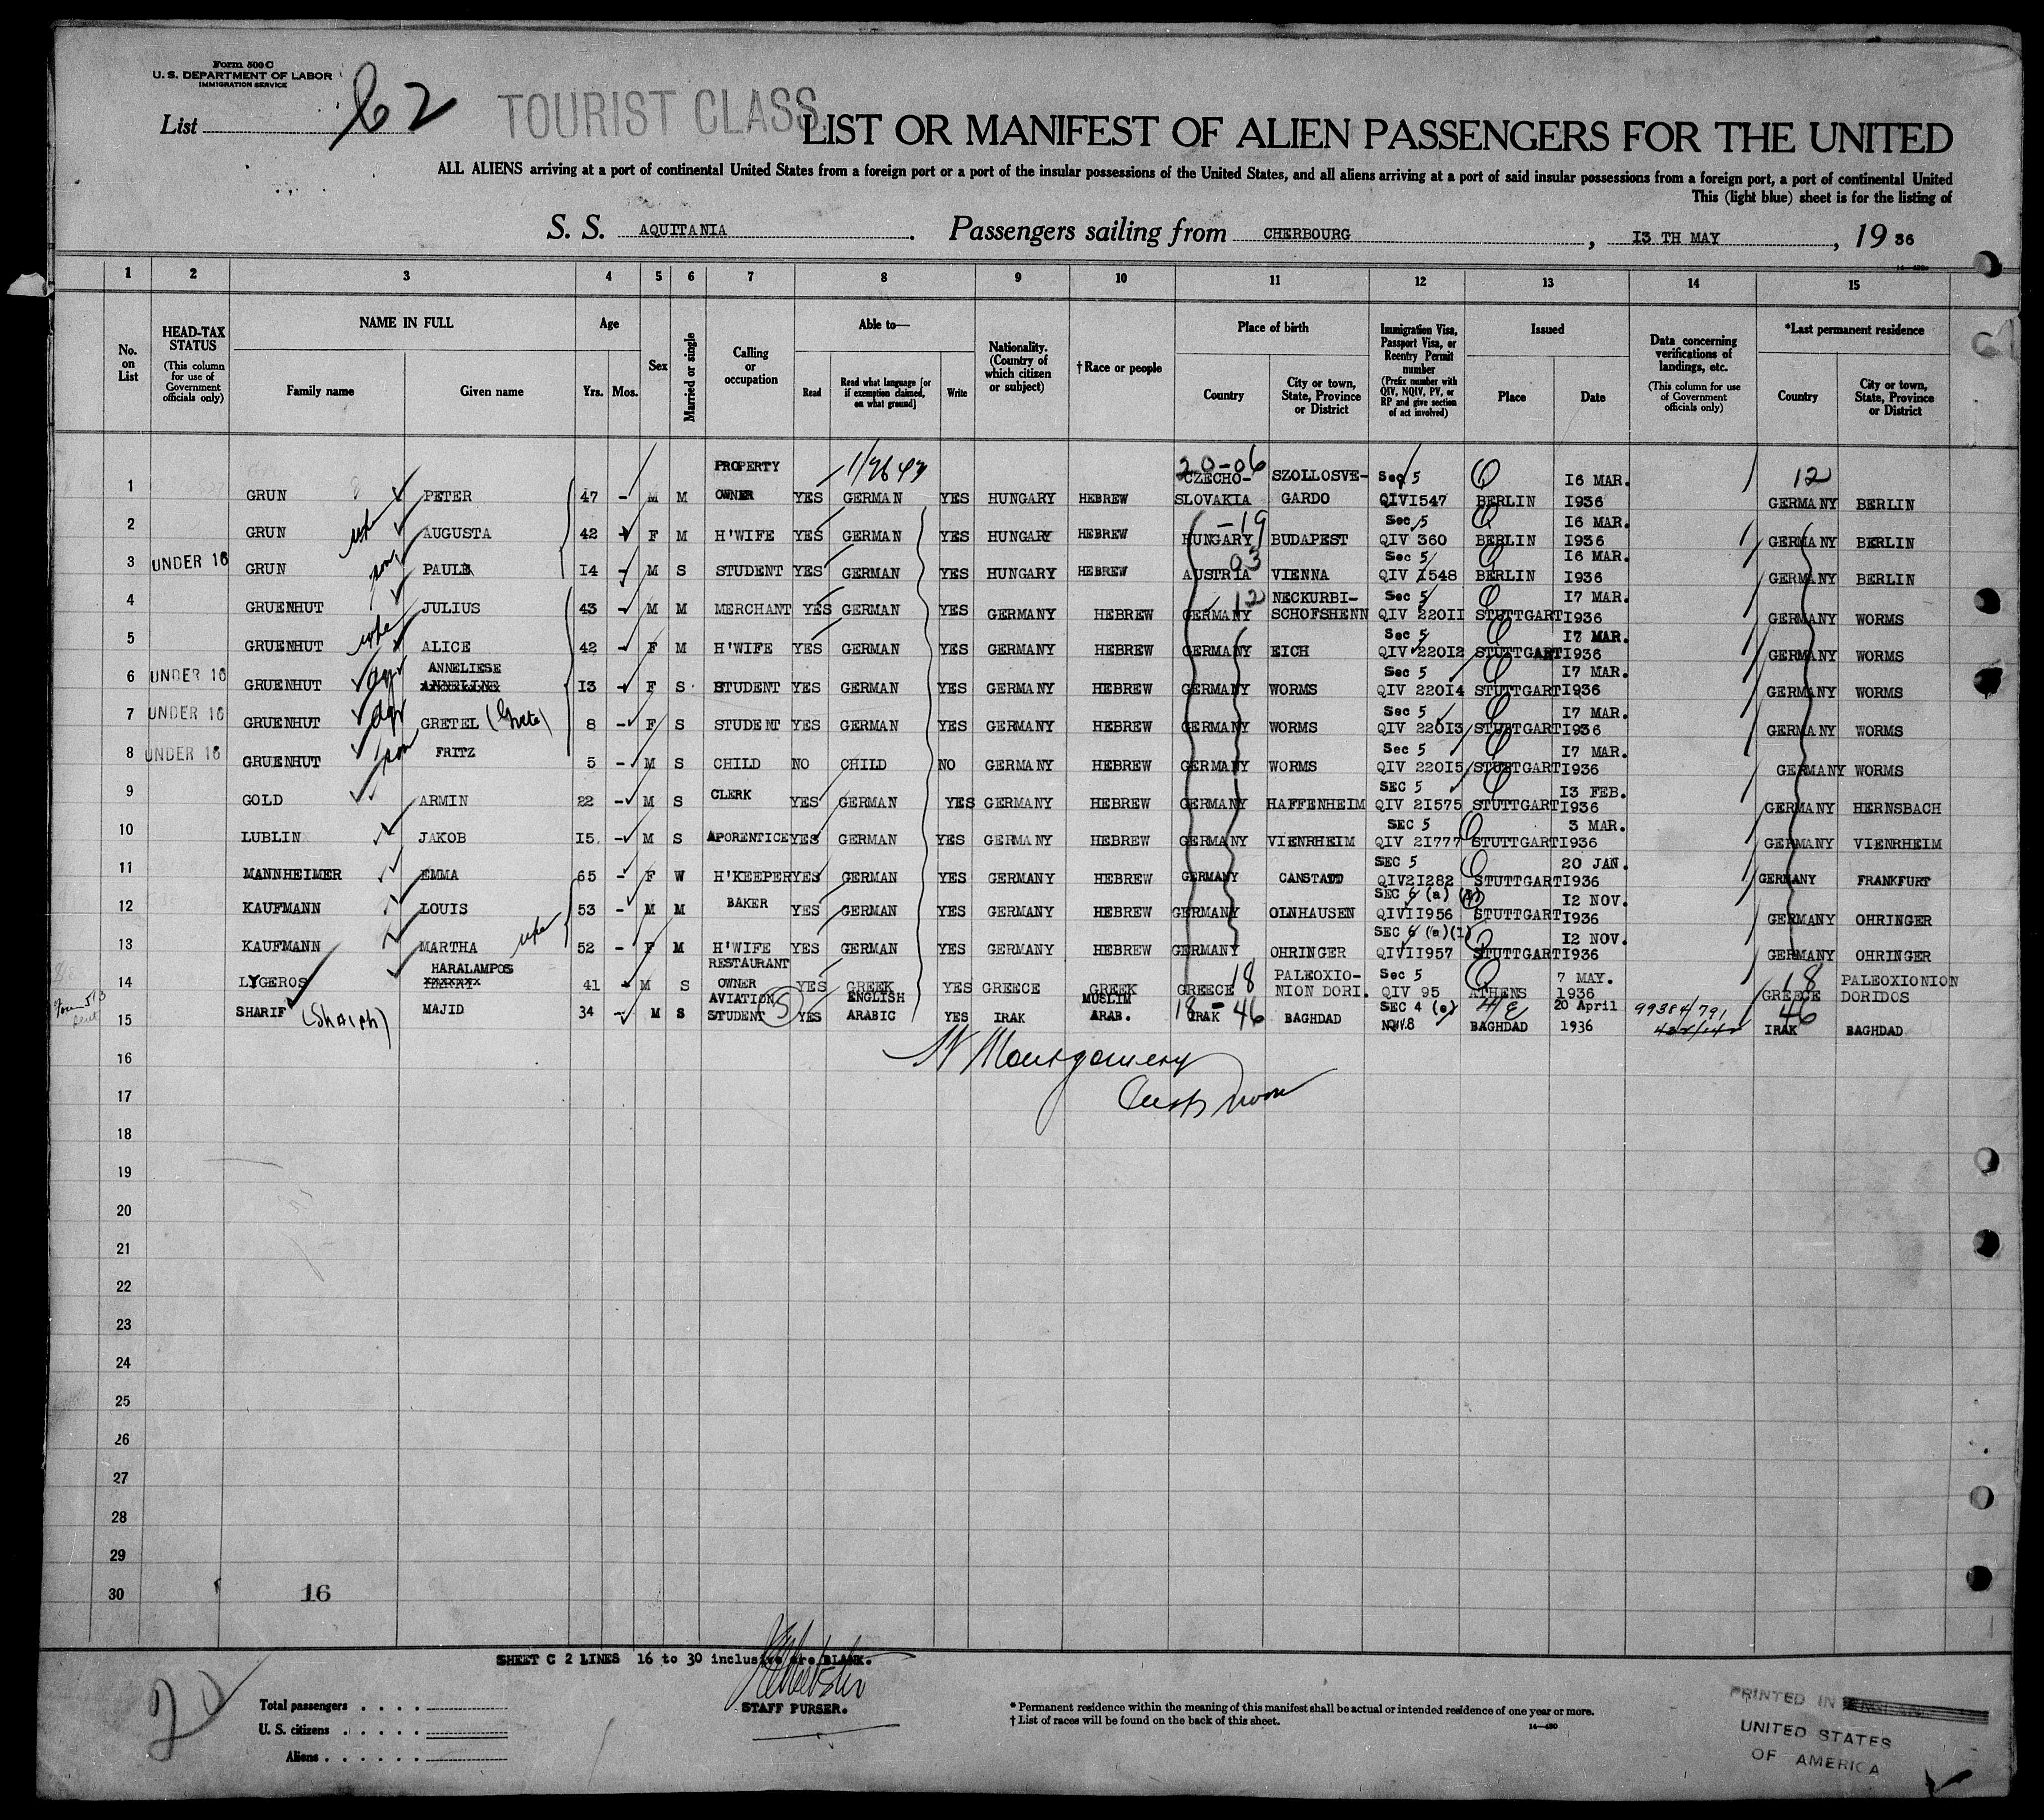 Form 500 C
U. S. DEPARTMENT OF LABOR
IMMIGRATION SERVICE
List 62
TOURIST CLASS.
LIST OR MANIFEST OF ALIEN PASSENGERS FOR THE UNITED
ALL ALIENS arriving at a port of continental United States from a foreign port or a port of the insular possessions of the United States, and all aliens arriving at a port of said insular possessions from a foreign port, a port of continental United
This (light blue) sheet is for the listing of
S. S. AQUITANIA. Passengers sailing from CHERBOURG, I3 TH MAY, 19 36
1 2 3 4 5 6 7 8 9 10 11 12 13 14 15
No. on List
HEAD-TAX STATUS (This column for use of Government officials only)
NAME IN FULL Family name Given name
Age Yrs. Mos.
Sex
Married or single
Calling or occupation
Able to— Read Read what language [or if exemption claimed, on what ground] Write
Nationality. (Country of which citizen or subject)
†Race or people
Place of birth Country City or town, State, Province or District
Immigration Visa, Passport Visa, or Reentry Permit number (Prefix number with QIV, NQIV, PV, or RP and give section of act involved)
Issued Place Date
Data concerning verifications of landings, etc. (This column for use of Government officials only)
*Last permanent residence Country City or town, State, Province or District
1 GRUN PETER 47 - M M PROPERTY OWNER YES GERMAN YES HUNGARY HEBREW 20-06 CZECHO-SLOVAKIA SZOLLOSVE-GARDO Sec 5 QIVI547 BERLIN I6 MAR. I936 12 GERMANY BERLIN
2 GRUN wife AUGUSTA 42 - F M H'WIFE YES GERMAN YES HUNGARY HEBREW -19 HUNGARY BUDAPEST Sec 5 QIV 360 BERLIN I6 MAR. I936 GERMANY BERLIN
3 UNDER 16 GRUN son PAUL I4 - M S STUDENT YES GERMAN YES HUNGARY HEBREW 03 AUSTRIA VIENNA Sec 5 QIV I548 BERLIN I6 MAR. I936 GERMANY BERLIN
4 GRUENHUT JULIUS 43 - M M MERCHANT YES GERMAN YES GERMANY HEBREW 12 GERMANY NECKURBI-SCHOFSHENN Sec 5 QIV 220II STUTTGART I7 MAR. I936 GERMANY WORMS
5 GRUENHUT wife ALICE 42 - F M H'WIFE YES GERMAN YES GERMANY HEBREW GERMANY EICH Sec 5 QIV 220I2 STUTTGART I7 MAR. I936 GERMANY WORMS
6 UNDER 16 GRUENHUT dgr ANNELIESE I3 - F S STUDENT YES GERMAN YES GERMANY HEBREW GERMANY WORMS Sec 5 QIV 220I4 STUTTGART I7 MAR. I936 GERMANY WORMS
7 UNDER 16 GRUENHUT dgr GRETEL (Grete) 8 - F S STUDENT YES GERMAN YES GERMANY HEBREW GERMANY WORMS Sec 5 QIV 220I3 STUTTGART I7 MAR. I936 GERMANY WORMS
8 UNDER 16 GRUENHUT son FRITZ 5 - M S CHILD NO CHILD NO GERMANY HEBREW GERMANY WORMS Sec 5 QIV 220I5 STUTTGART I7 MAR. I936 GERMANY WORMS
9 GOLD ARMIN 22 - M S CLERK YES GERMAN YES GERMANY HEBREW GERMANY HAFFENHEIM SEC 5 QIV 2I575 STUTTGART I3 FEB. I936 GERMANY HERNSBACH
10 LUBLIN JAKOB I5. - M S APORENTICE YES GERMAN YES GERMANY HEBREW GERMANY VIENRHEIM SEC 5 QIV 2I777 STUTTGART 3 MAR. I936 GERMANY VIENRHEIM
11 MANNHEIMER EMMA 65 - F W H'KEEPER YES GERMAN YES GERMANY HEBREW GERMANY CANSTADD SEC 5 QIV2I282 STUTTGART 20 JAN. I936 GERMANY FRANKFURT
12 KAUFMANN LOUIS 53 - M M BAKER YES GERMAN YES GERMANY HEBREW GERMANY OLNHAUSEN SEC 6 (a) (1) QIVII956 STUTTGART I2 NOV. I936 GERMANY OHRINGER
13 KAUFMANN MARTHA wife 52 - F M H'WIFE YES GERMAN YES GERMANY HEBREW GERMANY OHRINGER SEC 6 (a)(1) QIVII957 STUTTGART I2 NOV. I936 GERMANY OHRINGER
14 LYGEROS HARALAMPOS 41 - M S RESTAURANT OWNER YES GREEK YES GREECE GREEK 18 GREECE PALEOXIO-NION DORI. Sec 5 QIV 95 ATHENS 7 MAY. I936 18 GREECE PALEOXIONION DORIDOS
15 SHARIF (Sharph) MAJID 34 - M S AVIATION STUDENT (S) YES ENGLISH ARABIC YES IRAK MUSLIM ARAB. 18-46 IRAK BAGHDAD SEC 4 (e) NQIV.8 BAGHDAD 20 April 1936 99384/791 46 IRAK BAGHDAD
16
W Montgomery
17
18
19
20
21
22
23
24
25
26
27
28
29
30 16
SHEET C 2 LINES 16 to 30 inclusive are BLANK.
20
STAFF PURSER.
Total passengers . . . .
U. S. citizens . . . . .
Aliens . . . . . .
* Permanent residence within the meaning of this manifest shall be actual or intended residence of one year or more.
† List of races will be found on the back of this sheet.
14—430
PRINTED IN
UNITED STATES
OF AMERICA